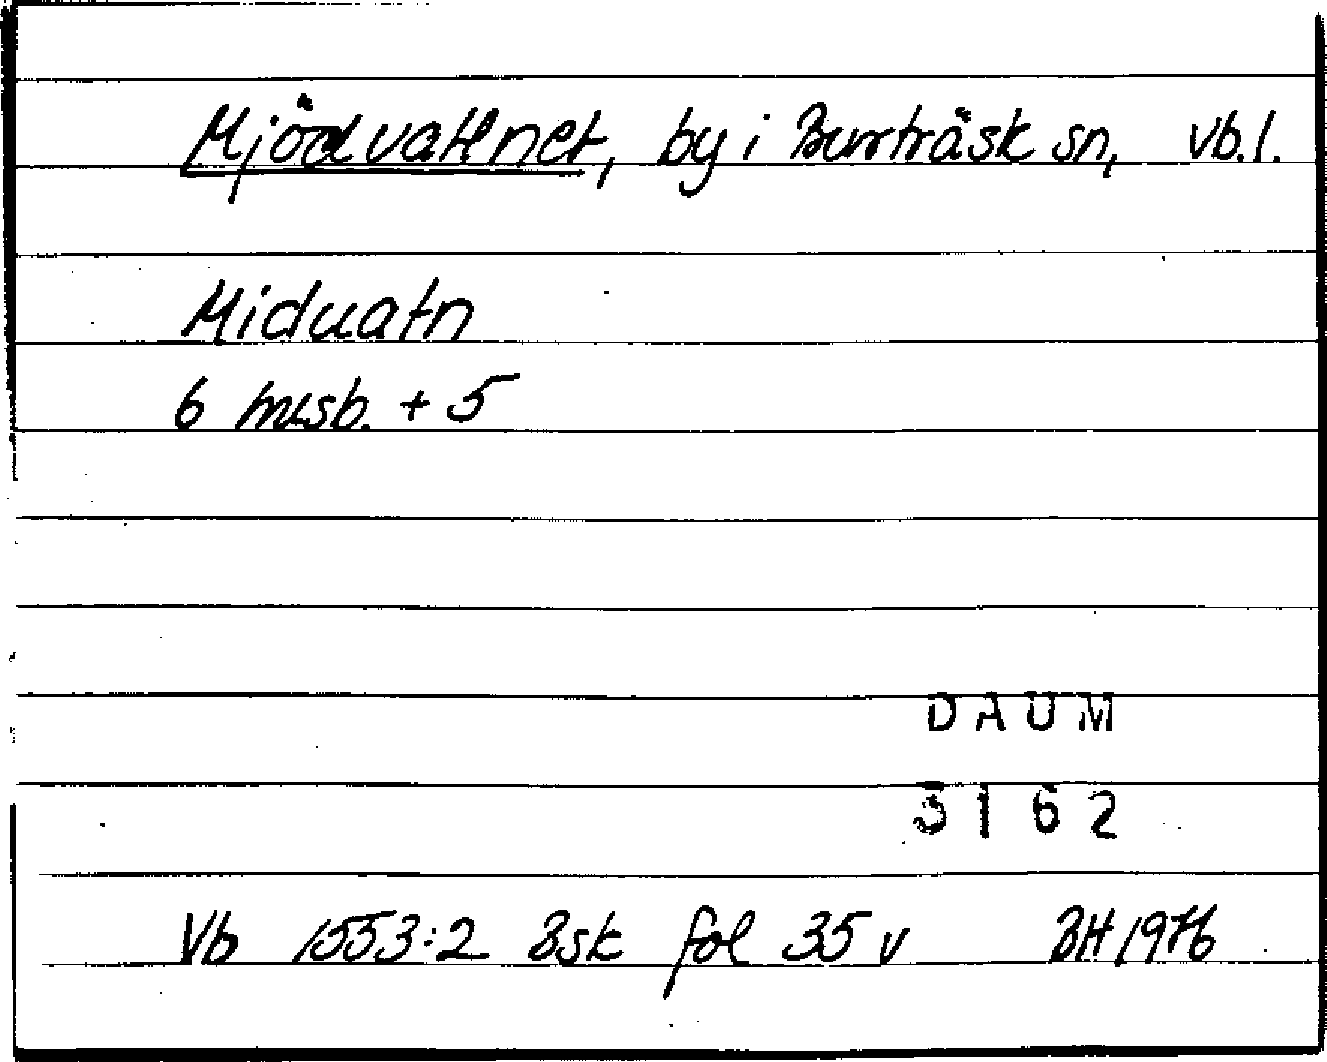 Mjödvattnet, by i Burträsk sn, vb.l.
Miduatn
6 mısb. + 5
DAUM
3162
Vb 1553:2 Bsk fol 35 v BH 1976